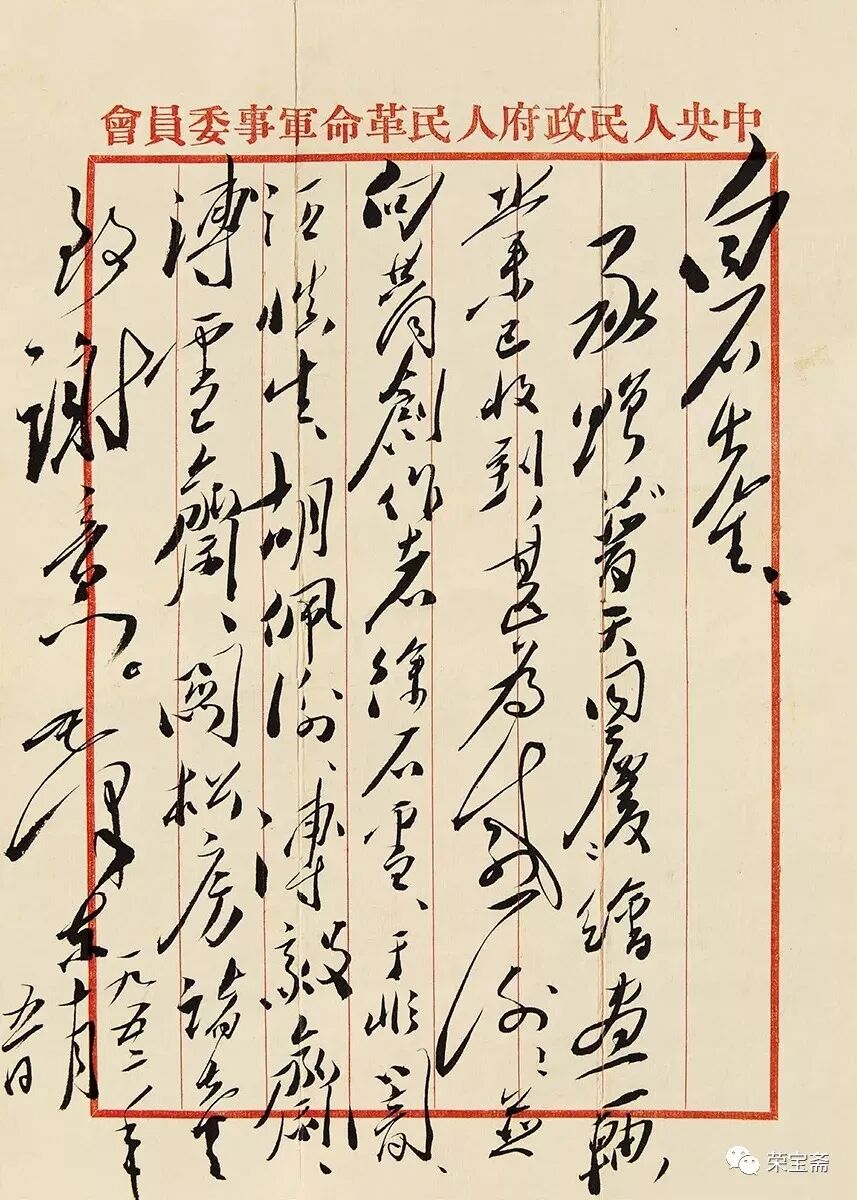 中央人民政府人民革命軍事委員會
白石先生:
承贈普天同慶繪畫一軸,
業已收到,甚為感謝!並
向共同創作者徐石雪、于非闇、
汪慎生、胡佩衡、溥毅齋、
溥雪齋、關松房諸先生
致謝意。毛澤東
一九五二年
十月
五日
荣宝斋